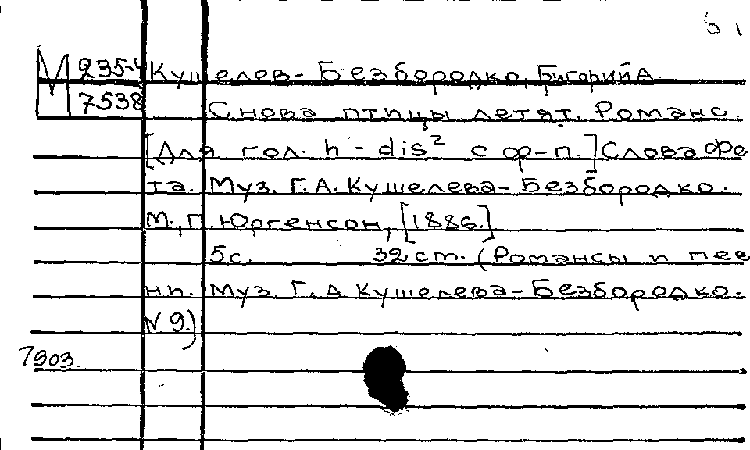 М 235-4 Кушелев-Безбородко, Григорий А.
7538 Снова птицы летят. Романс.
[Для гол. h - dis² с ф-п.] Слова Фо
та. Муз. Г. А. Кушелева-Безбородко.
М., П. Юргенсон, [1886.]
5 с. 32 ст. (Романсы и пес
ни. Муз. Г. А. Кушелева-Безбородко.
N 9.)
7903